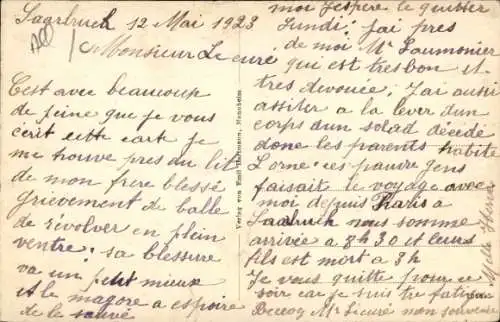 Saarbruck 12 Mai 1923
Monsieur Le curé
C'est avec beaucoup
de peine que je vous
écrit cette cart je
me trouve pres du lit
de mon frere blessé
grievement de balle
de révolver en plein
ventre: sa blessure
va un petit mieux
et le magore a espoire
de le sauvé
Verlag von Mannheim
moi j'espere le quitter
Lundi: j'ai pres
de moi Mr Laumonier
qui est tres bon et
tres devouée; j'ai aussi
assiter a la lever d'un
corps d'un solad décédé
donc les parents habite
Lorne: ces pauvre gens
faisait le voyage avec
moi depuis Paris a
Saabruck nous somme
arrivée a 8h30 et leurs
fils est mort a 8h
Je vous quitte pour ce
soir car je suis tre fatiguer
Mr Lecuré mon souvenir
Melle